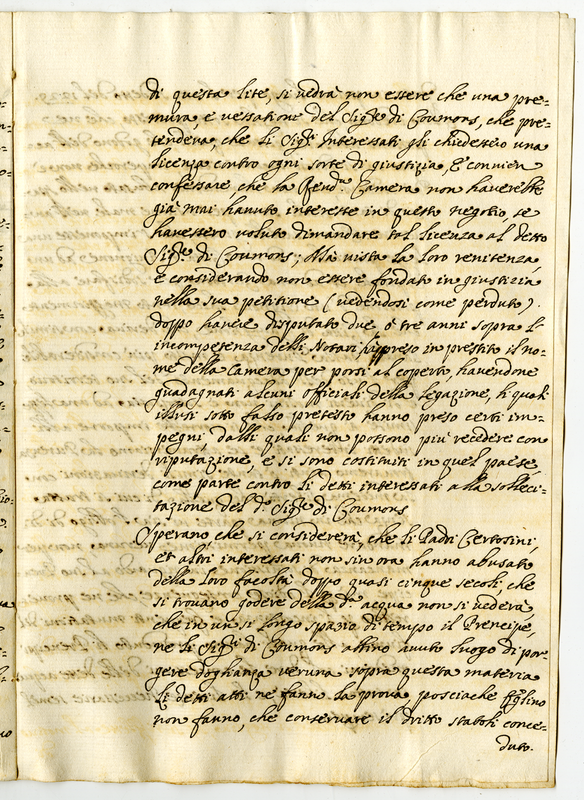 di questa lite, si vedrà non essere che una pre=
mura, e vessatione del Sig.re di Coumons, che pre=
tendeva, che li Sig.ri Interessati gli chiedessero una
licenza contro ogni sorte di giustizia, E convien
confessare che la Revd.a Camera non haverebbe
già mai havuto interesse in questo negotio, se
havessero voluto dimandare tal licenza al detto
Sig.re di Coumons; Mà vista la loro renitenza,
e considerando non essere fondato in giustizia
nella sua petitione (vedendosi come perduto)
doppo havere disputato due, ò tre anni sopra l'
incompetenza delli Notari, preso in prestito il no=
me della Camera per porsi al coperto havendone
guadagnati alcuni officiali della legazione, li quali
illusi sotto falso pretesto hanno preso certi im=
pegni, dalli quali non possono più recedere con
riputazione, e si sono costituiti in quel paese,
come parte contro li detti interessati alla solleci=
tazione del d.o Sig.re di Coumons
Sperano che si considererà, che li Padri Certosini,
et altri interessati non sin ora hanno abusato
della loro facoltà doppo quasi cinque secoli, che
si trovano godere della d.a acqua non si vederà
che in un sì longo spazio di tempo il Prencipe,
ne li Sig.ri di Coumons abbino avuto luogo di por=
gere doglianza veruna sopra questa materia
Li detti atti ne fanno la prova, posciache Eglino
non fanno, che conservare il dritto statoli conce=
duto.